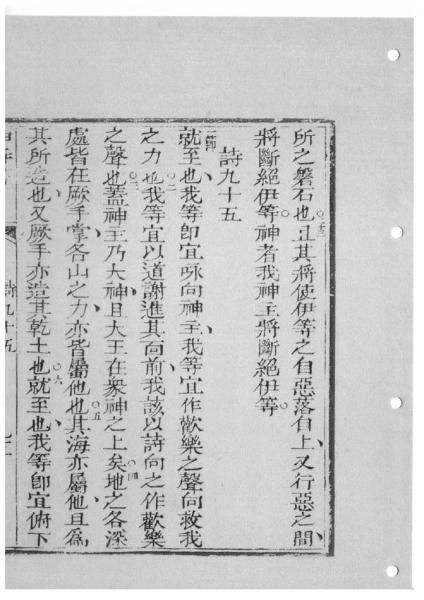 所之磐石也○二十三且其將使伊等之自惡落自上、又行惡之間、
將斷絕伊等○神者我神主將斷絕伊等○
詩九十五
一節就至也、我等卽宜咏向神主、我等宜作歡樂之聲向救我
之力也○二我等宜以道謝進其面前、我該以詩向之作歡樂
之聲也○三蓋神主乃大神、且大王在衆神之上矣○四地之各深
處皆在厥手掌、各山之力、亦皆屬他也○五其海亦屬他、且爲
其所造也、又厥手亦造其乾土也○六就至也、我等卽宜俯下
詩九十五